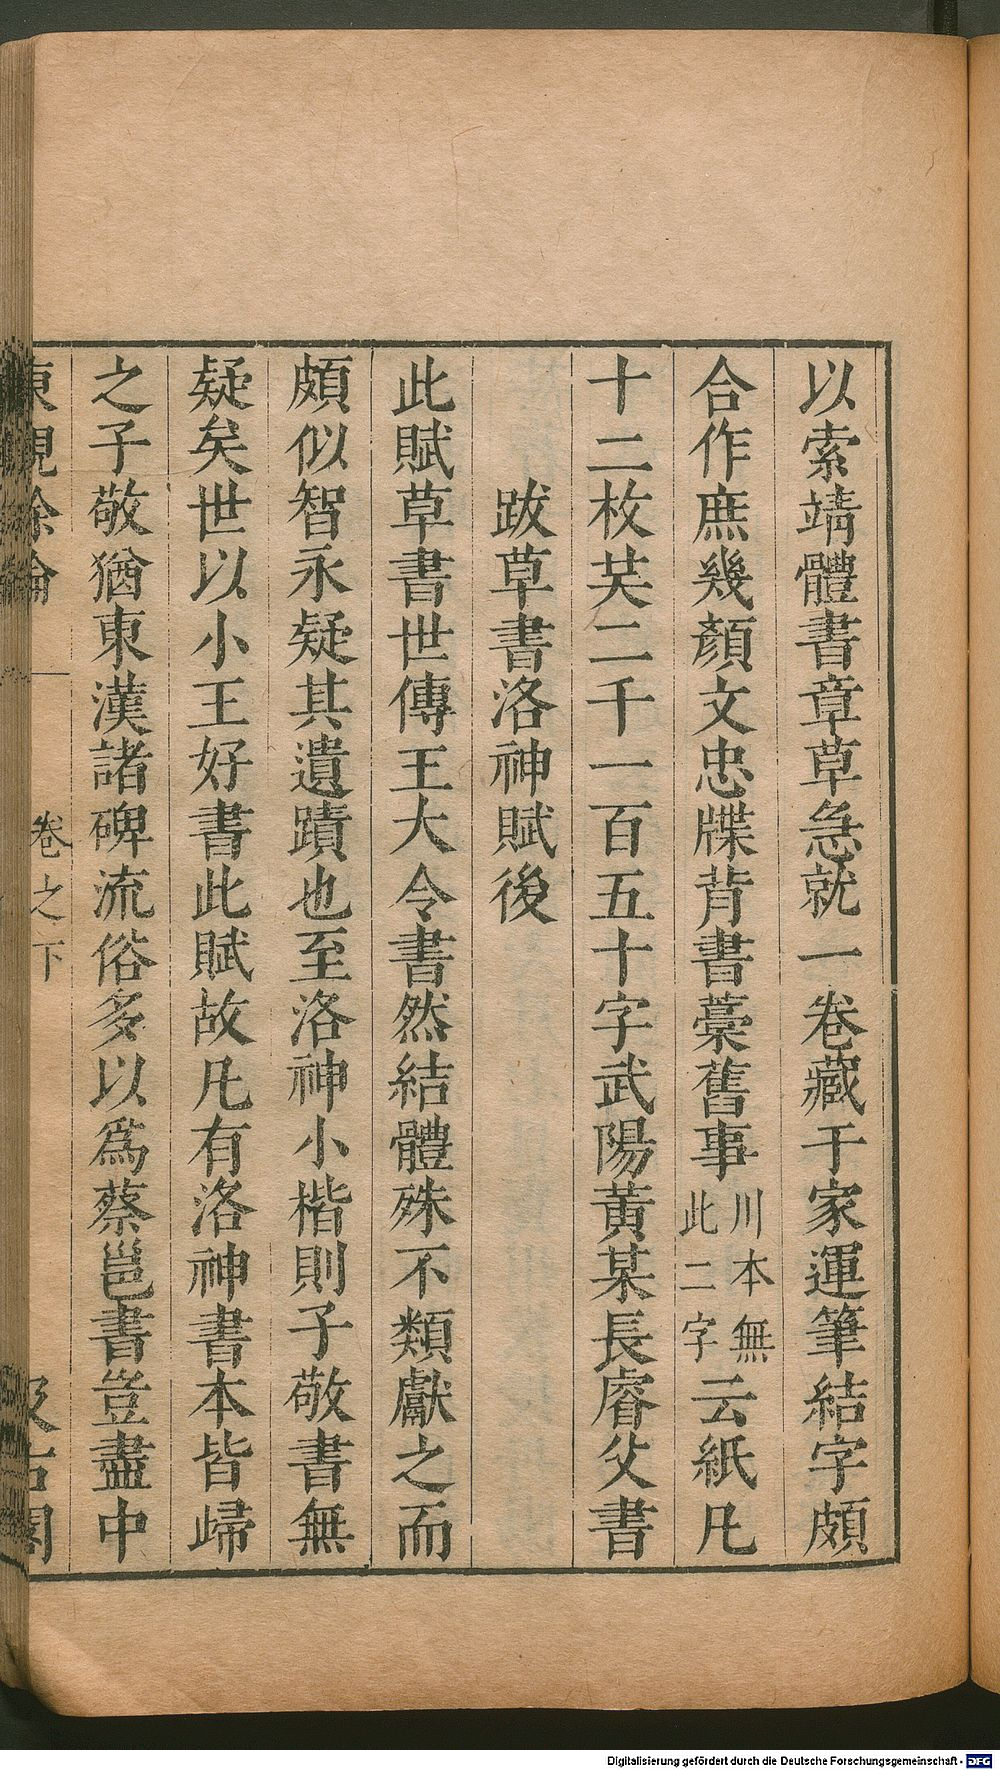 以索靖體書章草急就一卷藏于家運筆結字頗
合作庶幾顏文忠牒背書藁舊事川本無此二字云紙凡
十二枚共二千一百五十字武陽黄某長睿父書
跋草書洛神賦後
此賦草書世傳王大令書然結體殊不類獻之而
頗似智永疑其遺蹟也至洛神小楷則子敬書無
疑矣世以小王好書此賦故凡有洛神書本皆歸
之子敬猶東漢諸碑流俗多以爲蔡邕書豈盡中
東觀餘論 卷之下 汲古閣
Digitalisierung gefördert durch die Deutsche Forschungsgemeinschaft - DFG